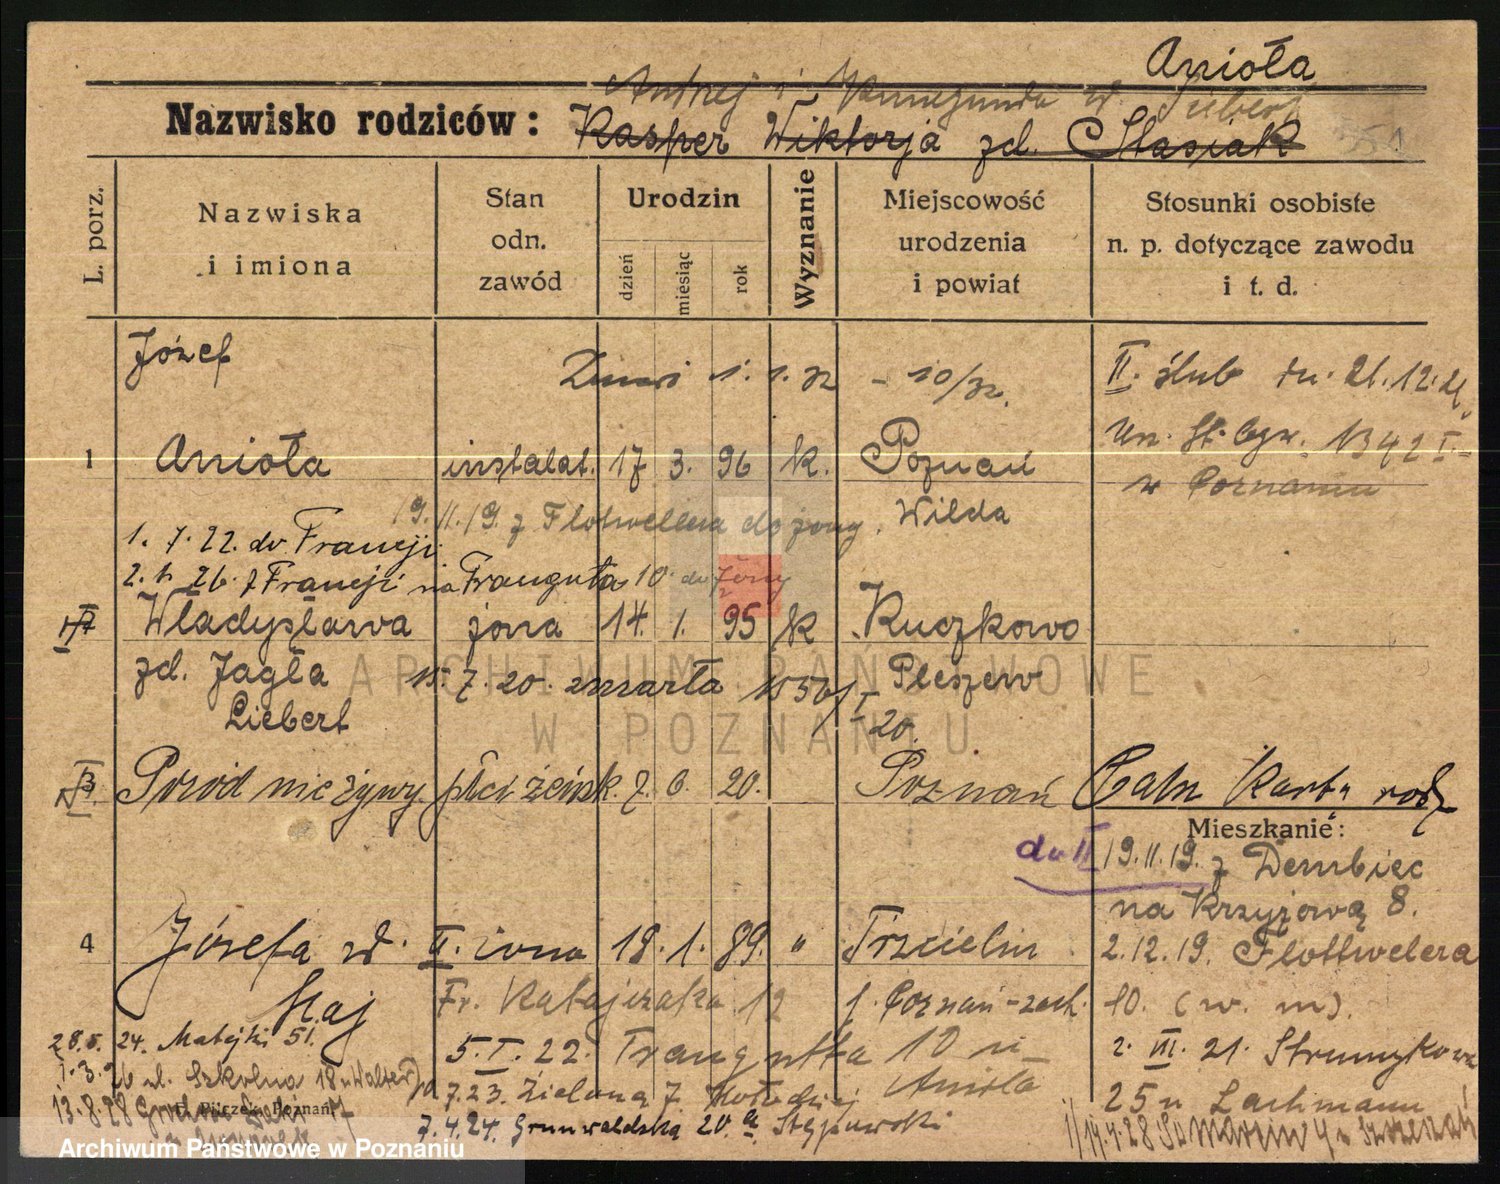 Anioła
Andrzej i Kunegunda zd. Siebert
Nazwisko rodziców: Kasper Wiktorja zd. Stasiak
L. porz.
Nazwiska i imiona
Stan odn. zawód
Urodzin
dzień
miesiąc
rok
Wyznanie
Miejscowość urodzenia i powiat
Stosunki osobiste n. p. dotyczące zawodu i t. d.
Józef
1. 1. 32 - 10/32.
II. ślub dn. 21.12.21
1342 I
w Poznaniu
1 Anioła instalat. 17 3. 96 k. Poznań
Wilda
19.11.19. z Flotwellera do żony.
1. 7. 22. do Francji
26. z Francji na Traugutta 10 do żony
Władysława żona 14. 1. 95 k Kuczkowo
zd. Jagła 15. 7. 20. zmarła Pleszew
Liebert 20.
Poród nieżywy płci żeńsk. 7. 6. 20. Poznań
Mieszkanie:
do II
19.11.19. z Dembiec
na Krzyżową 8.
4 Józefa zd. II. żona 18. 1. 89. " Trzcielin
2.12.19. Flottwelera
Maj
Fr. Ratajczaka 12 Poznań-zach.
10. (w. m).
28.5. 24. Matejki 51.
5. I. 22. Traugutta 10 u Anioła
2. III. 21. Strumykowa
25 u Lachmann
1.3.26 ul. Szkolna 18 u Walter
7.23. Zielona 7
13.8.28
Pilczek, Poznań
7.4.24. Grunwaldska 20.a Stępowski
14.4.28 Św Marcin
ARCHIWUM PAŃSTWOWE
W POZNANIU
Archiwum Państwowe w Poznaniu